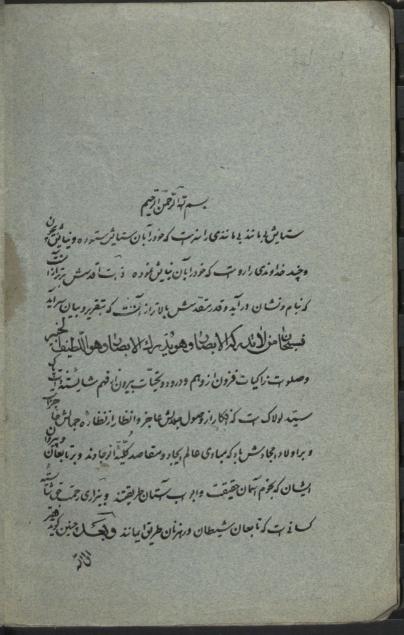 بسم الله الرحمن الرحیم
ستایش بی مانند بی مانندی را سزاست که خود را بآن ستایش ستوده و نیایش بیچون
و چند خداوندی را رواست که خود را بآن نیایش نموده ذات اقدسش برتر از آنست
که بنام و نشان در آید و قدر مقدسش بالاتر از آنست که بتقریر و بیان سر آید
فسبحان من لا تدرکه الابصار و هو یدرک الابصار و هو اللطیف الخبیر
و صلوات زاکیات فزون از وهم و درود و تحیات بیرون از فهم شایسته
سید لولاک است که افکار از وصول مبادیش عاجز و انظار از نظاره جمالش
و بر اولاد امجادش باد که مبادی عالم ایجاد و مقاصد کلیه از بر تابعان
ایشان که نجوم آسمان حقیقت و ابواب آستان طریقتند و بیزاری
کسانی است که تابعان شیطان و رهزنان طریق ایمانند و بعد چنین گوید فقیر